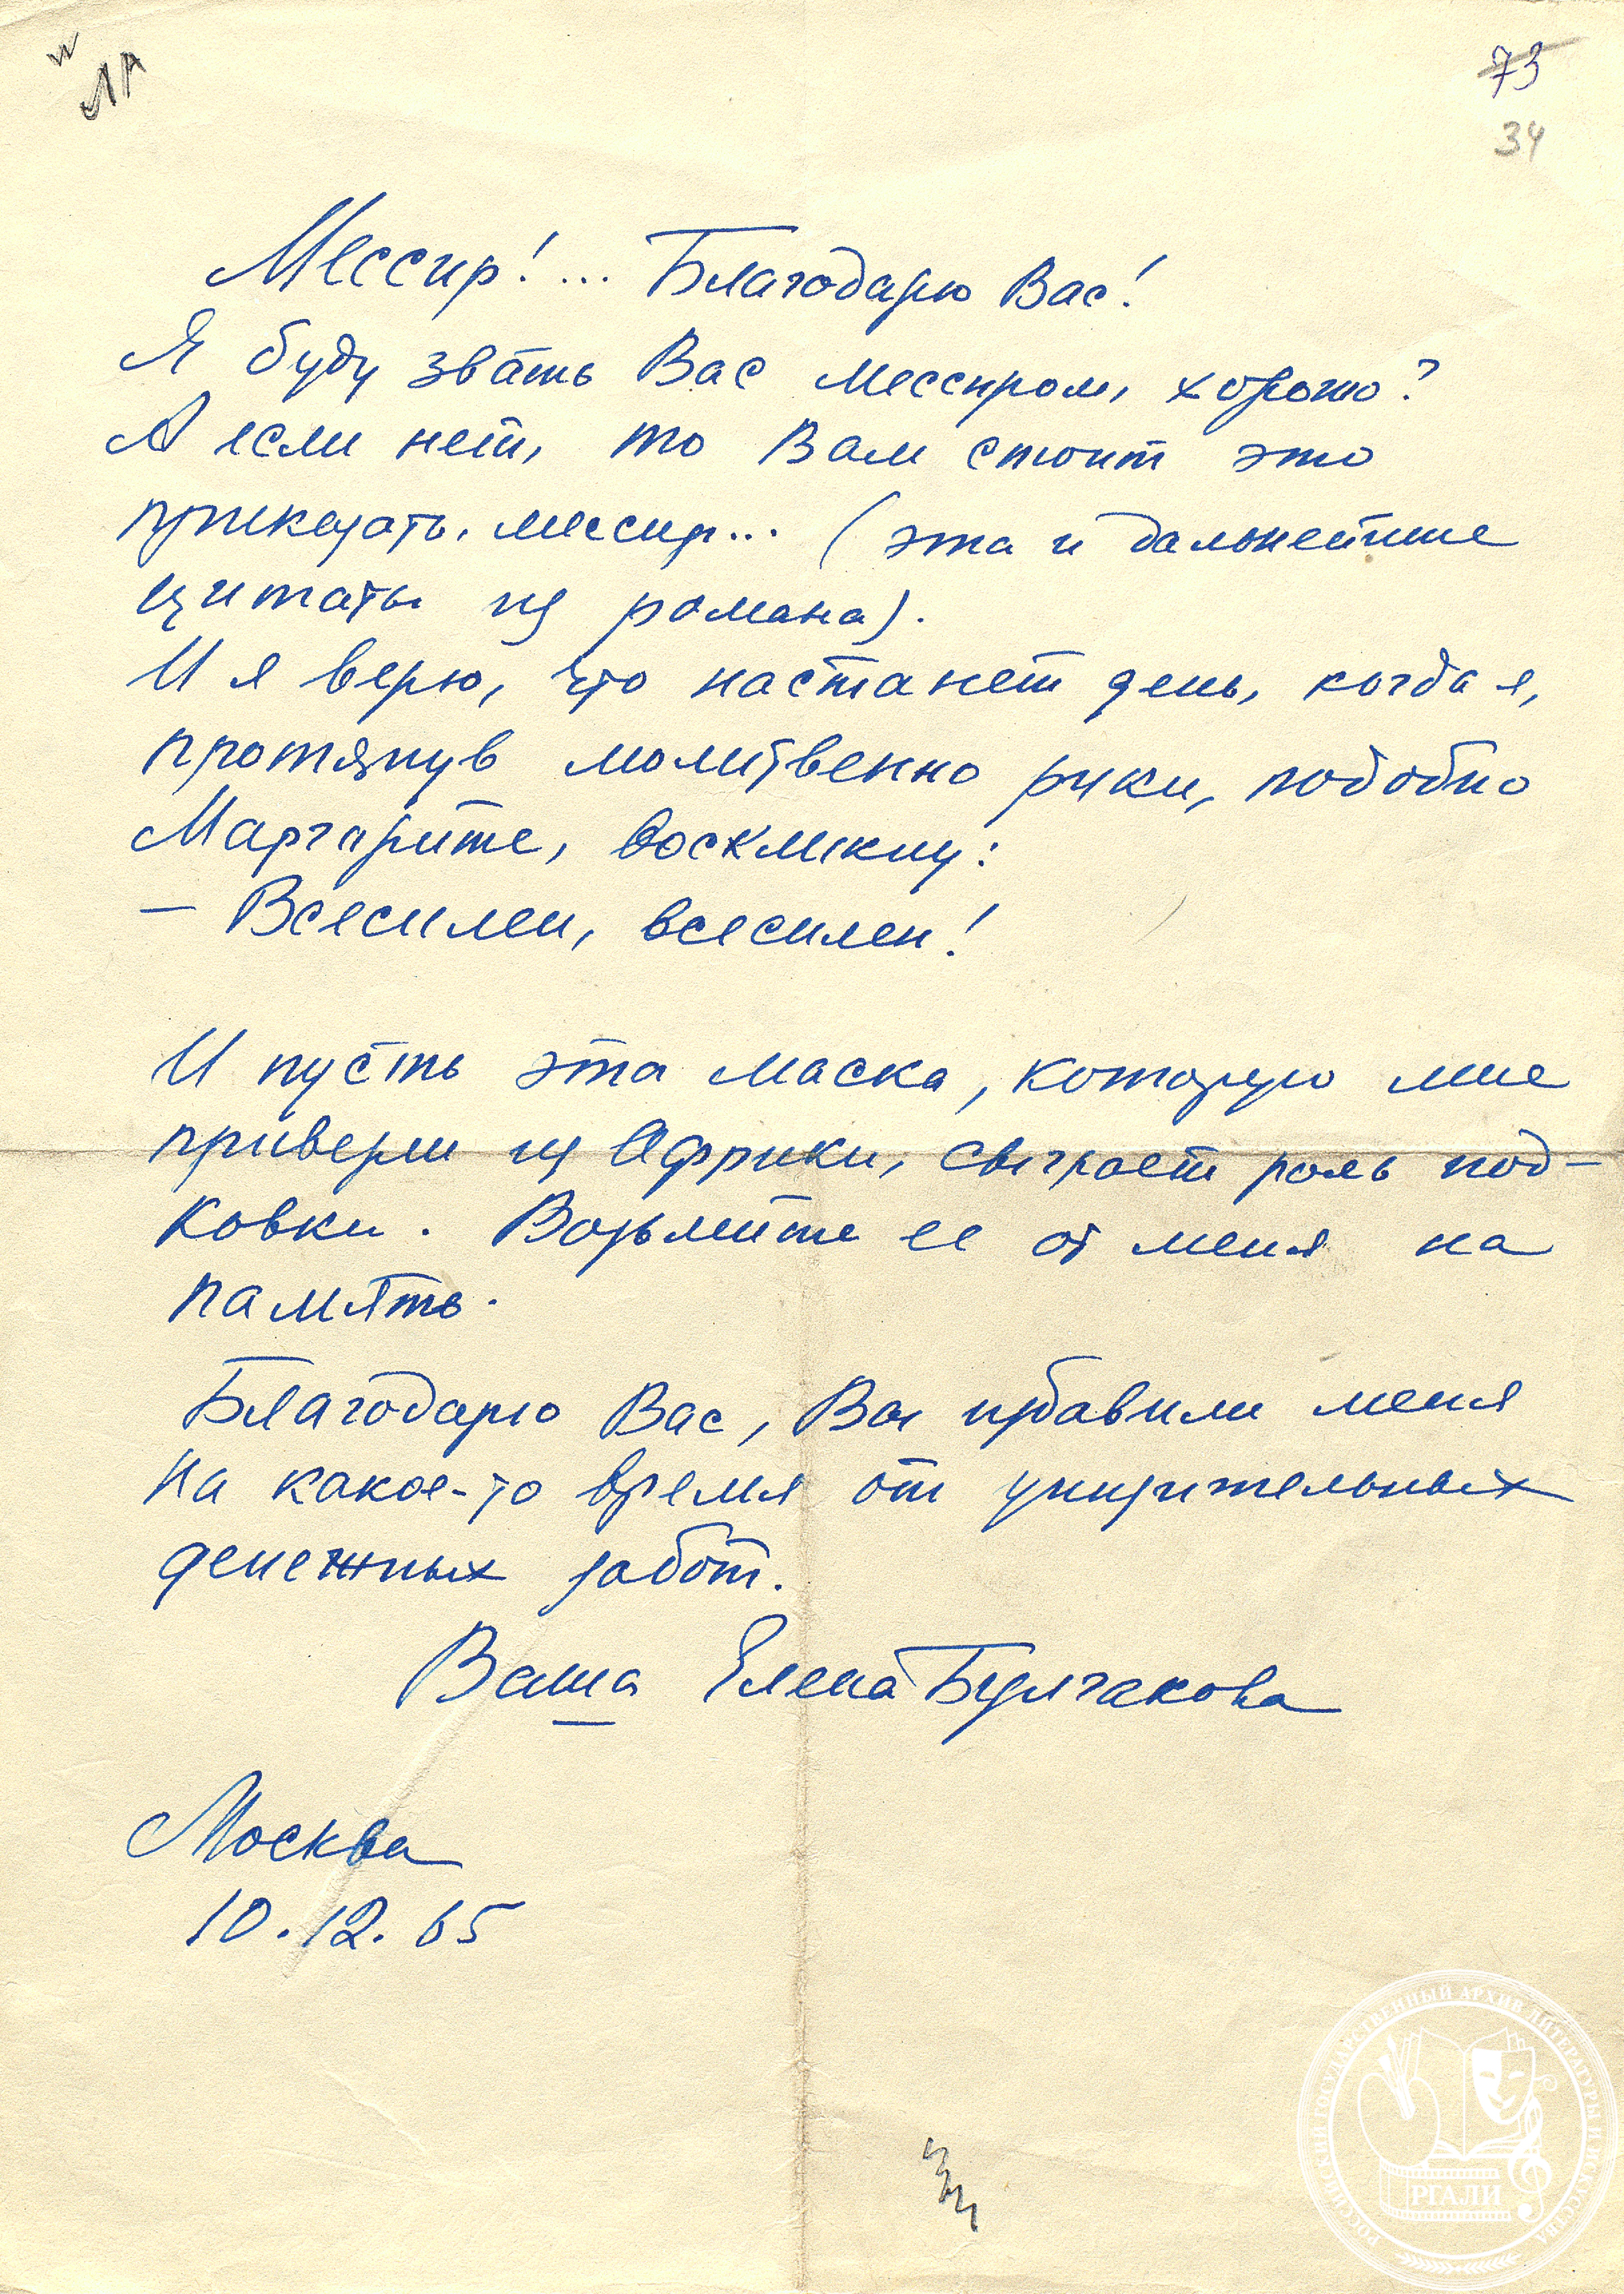 ЛА
73
34
Мессир!... Благодарю Вас!
Я буду звать Вас мессиром, хорошо?
А если нет, то Вам стоит это
приказать, мессир... (эта и дальнейшие
цитаты из романа).
И я верю, что настанет день, когда я,
протянув молитвенно руки, подобно
Маргарите, воскликну:
– Всесилен, всесилен!
И пусть эта маска, которую мне
привезли из Африки, сыграет роль под-
ковки. Возьмите ее от меня на
память.
Благодарю Вас, Вы избавили меня
на какое-то время от унизительных
денежных забот.
Ваша Елена Булгакова
Москва
10.12.65
РОССИЙСКИЙ ГОСУДАРСТВЕННЫЙ АРХИВ ЛИТЕРАТУРЫ И ИСКУССТВА
РГАЛИ